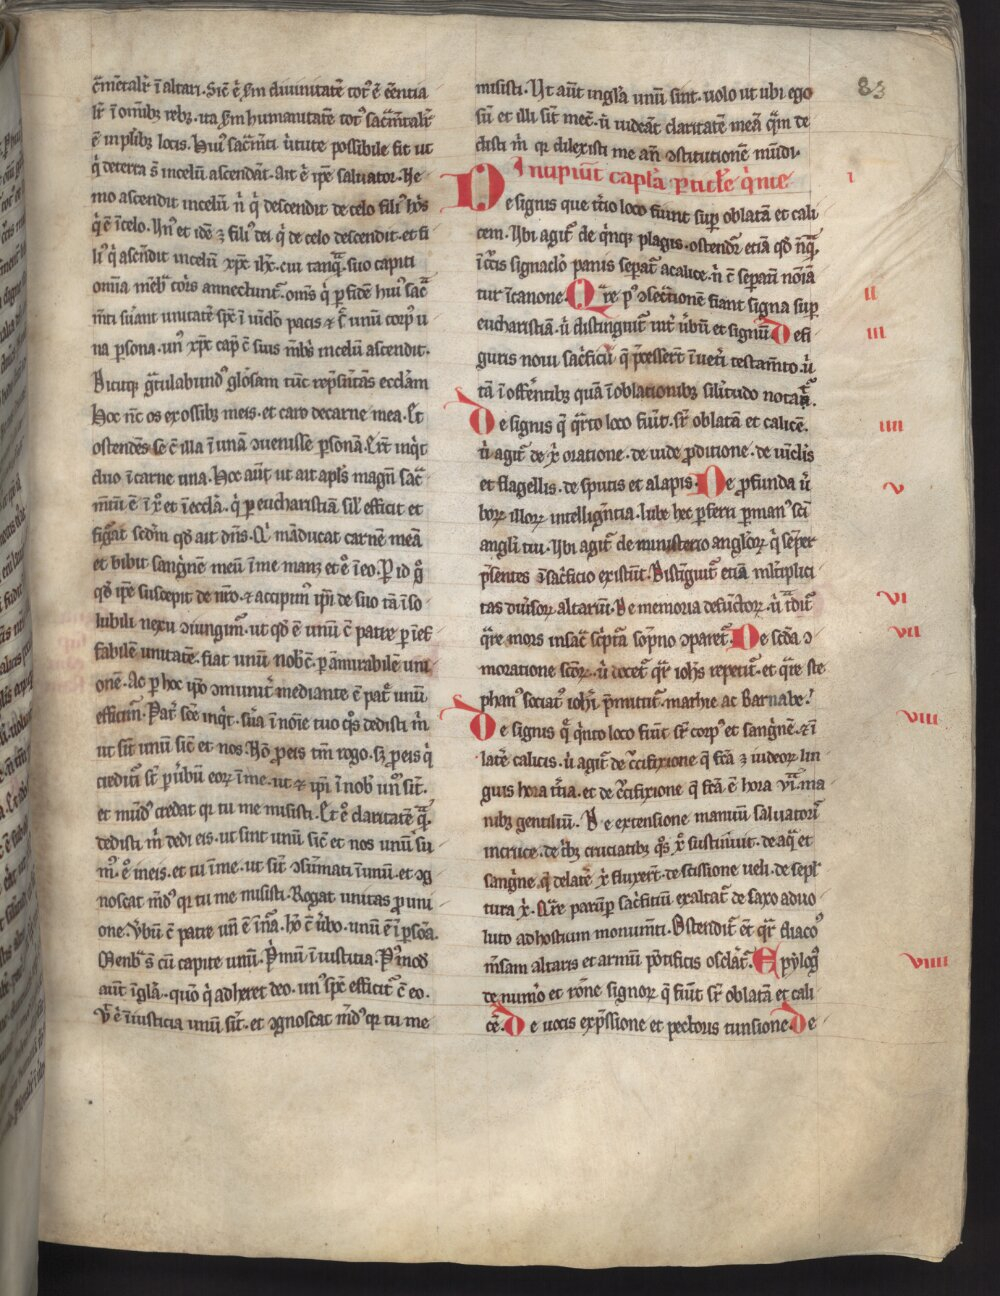 mtalr̄ ī altari. Sic̄ ē s̄m diuinitatē tot᷒ ē c̄entia
lr̄ ī om̄ib; reb;. ita s̄m humanitatē tot᷒ sac̄m̄talr̄
ē in plīb; locis. Hui᷒ sac̄m̄ti ūtute possibile fit ut
q̄ de terra s̄ in celum ascendāt. Ait ē ip̄e saluator. Ne
mo ascendit in celū n̄ q̄ descendit de celo fili᷒ hoīs
q̄ ē ī celo. Vn᷒ et idē ē fili᷒ dei q̄ de celo descendit. et fi
li᷒ q̄ ascendit in celū xp̄c ih̄c. cui tanq̄ suo capiti
om̄ia mēb̄ corīs annectunt̄. om̄s q̄ p fidē hui᷒ sac̄
m̄ti suant unitatē sp̄c ī uīclo pacis ⁊ s̄t unū corp᷒ u
na p̄sona. un᷒ xp̄c cap᷒ c̄ suis mēb̄s in celum ascendit.
Dicitq; gr̄tulabund᷒ glosam tūc rep̄sn̄tās ecclām
Hoc nc̄ os ex ossib; meis. et caro de carne mea. Et
ostendēs se c̄ illa ī unā ɔuenisse p̄sonā. Erūt inq̄t
duo ī carne una. Hoc aūt ut ait apl̄s magnū sac̄
m̄tum ē ī x̄o et ī ecclā. q̄ p eucharistiā sil̄ efficit et
figāt sc̄dm qd̄ ait dn̄s. Qi māducat carnē meā
et bibit sangnē meū ī me manz et ē᷒ ī eo. P id q̄
qd̄ ip̄e suscepit de nr̄o. ⁊ accipim᷒ ip̄i de suo tā ī so
lubili nexu ɔiungim᷒. ut qd̄ ē unū c̄ patre p ief
fabilē unitatē. fiat unū nob̄ c̄ p amirabilē uni
onē. Ac p hoc ip̄o ɔmunit̄ mediante c̄ pat̄ unū
efficim᷒. Pat̄ sc̄e inq̄t. sūa ī noīe tuo q̄s dedisti m̄
ut sīt unū sic̄ et nos. Nō p eis tm̄ rogo. s; p eis q̄
creditūi s̄t p ūbū eor ī me. ut ⁊ ip̄i ī nob̄ un᷒ sīt.
et mūd᷒ credat q̄ tu me misisti. Et ē᷒ claritatē q̄
dedisti m̄ dedi eis. ut sint unū sic̄ et nos unū su
m᷒. ē᷒ in eis. et tu ī me. ut sīt ɔsum̄ati ī unū. et ɔg
noscat mūd᷒ q̄ tu me misisti. Rogat unitas p uni
one. Vbū c̄ patre un᷒ ē ī nā. hō c̄ ūbo. unū ē ī p̄sōa.
Menb̄ s̄ cū capite unū. P̄mū ī iustitia. P᷒ mod̄
aūt ī gl̄a. quō q̄ adheret deo. un᷒ sp̄c efficit̄ c̄ eo.
V᷒ ē ī iusticia unū sīt. et ɔgnoscat mūd᷒ q̄ tu me
misisti. Vt aūt in gl̄a unū sint. uolo ut ubi ego
sū et illi sīt mec̄. ū uideāt claritatē meā q̄m de
disti m̄ q̄ dilexisti me an̄ ɔstitutionē mūdi.
Incipiūt capl̄a p̄ticl̄e q̄nte
i
De signis que t̄tio loco fiunt sup oblatā et cali
cem. Vbi agit̄ de q̄nq; plagis. ostendr̄ etiā qd̄ nq̄
ī c̄cis signaclo panis separat̄ a calice. n̄ c̄ separī noīa
tur ī canone. Qr̄e p᷒ ɔsec̄tionē fiant signa sup
ii
eucharistiā. ū distinguit̄ int̄ ūbū et signū. De fi
iii
guris noui sac̄ficii q̄ p̄cesserūt ī uet̄i testam̄to. ū
tā ī offerentib; quā ī oblationib; similitudo notat̄.
De signis q̄ q̄rto loco fiūt. sr̄ oblatā et calicē.
iiii
ū agit̄ de x̄ oratione. de iude p̄ditione. de uīclis
et flagellis. de sputis et alapis. De p̄funda ū
v
bor illor intellign̄tia. Iube hec p̄ferri p man᷒ sc̄i
angli tui. Vbi agit̄ de ministerio anglor q̄ semper
p̄sentes ī sac̄ficio existūt. Distinguit̄ etiā ml̄tiplici
tas diuisor altarium. De memoria defūctor. ū t̄dit̄
vi
q̄re mors in sac̄ sc̄pt̄a sopno ɔparet̄. De sc̄da ɔ
vii
moratione sc̄or. ū docet̄ qr̄ ioh̄s repetit̄. et q̄re ste
phan᷒ sociat᷒ ioh̄i p̄mittit̄ mathie ac Barnabe.
De signis q̄ q̄nto loco fiūt sr̄ corp᷒ et sangnē. ⁊ ī
viii
latē calicis. ū agit̄ de c̄cifixione q̄ fc̄a ē iudeor lin
guis hora t̄tia. et de c̄cifixione q̄ fc̄a ē hora vi. ma
nib; gentilium. De extensione manuū saluatoris
in cruce. de t̄b; cruciatib; q̄s x̄ sustinuit. de aq̄ et
sangne q̄ de latē x̄ fluxert̄. de scissione ueli. de sepl̄
tura x̄. Qr̄e parūp sac̄ficiū exaltat̄ de saxo aduo
luto ad hostium monumti. Ostendit̄ et qr̄ diaco᷒
m̄sam altaris et armū pōtificis osclat̄. Epylog᷒
viiii
de num̄o et rōne signor q̄ fiūt sr̄ oblatā et cali
cē. De uocis exp̄ssione et pectoris tunsione. De
83